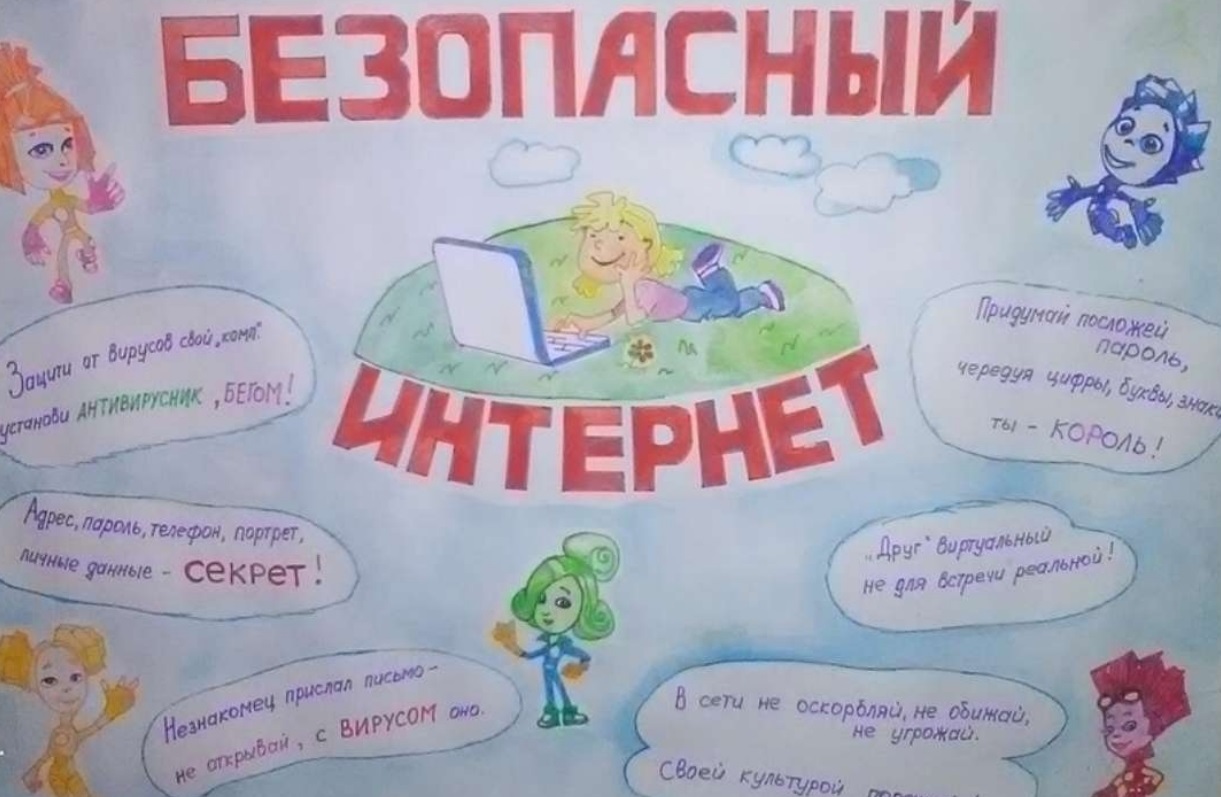 БЕЗОПАСНЫЙ
ИНТЕРНЕТ
Защити от вирусов свой „комп".
установи АНТИВИРУСНИК, БЕГОМ!
Придумай посложей
пароль,
чередуя цифры, буквы, знаки
ты - КОРОЛЬ!
Адрес, пароль, телефон, портрет,
личные данные - СЕКРЕТ!
„Друг" виртуальный
не для встречи реальной!
Незнакомец прислал письмо -
не открывай, с ВИРУСОМ оно.
В сети не оскорбляй, не обижай,
не угрожай.
Своей культурой